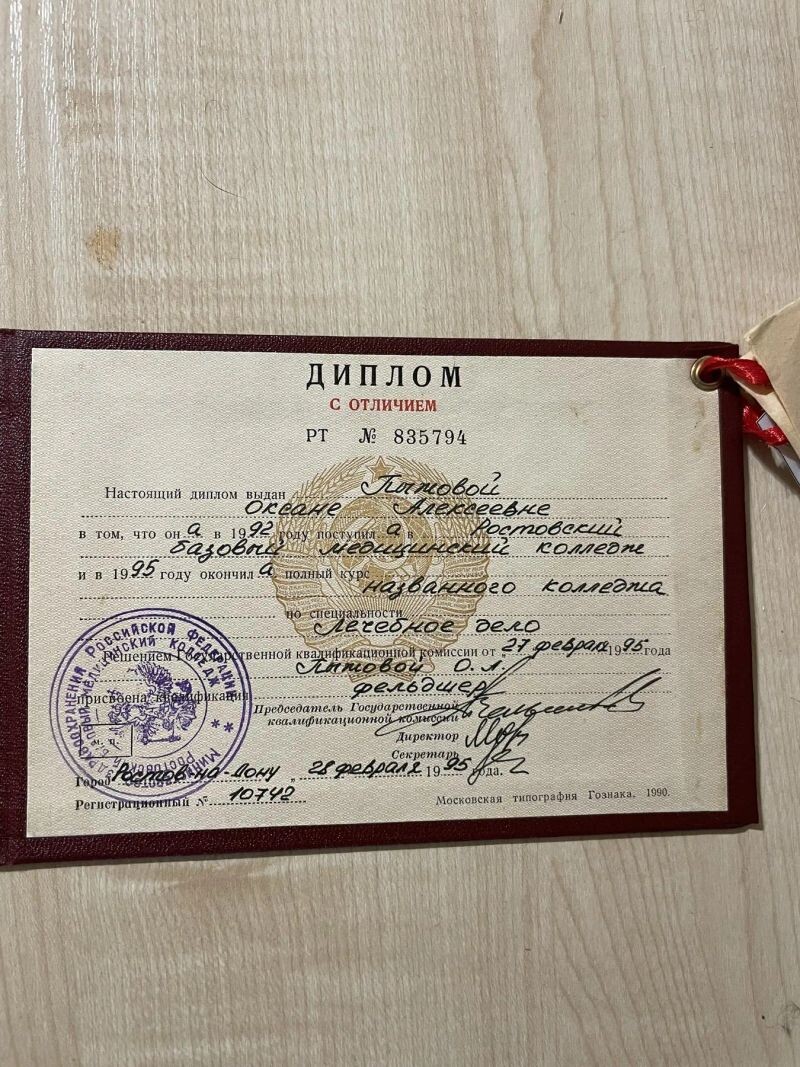 ДИПЛОМ
С ОТЛИЧИЕМ
РТ № 835794
Настоящий диплом выдан Пытовой
Оксане Алексеевне
в том, что он а в 1992 году поступил а в Ростовский
базовый медицинский колледж
и в 1995 году окончил а полный курс
названного колледжа
по специальности
Лечебное дело
Решением Государственной квалификационной комиссии от 27 февраля 1995 года
Пытовой О. А.
присвоена квалификация фельдшер
Председатель Государственной
квалификационной комиссии
Директор
Секретарь
Город Ростов-на-Дону „ 28 февраля 1995 года.
Регистрационный № 10742
Московская типография Гознака. 1990.
ЗДРАВООХРАНЕНИЯ РОССИЙСКОЙ ФЕДЕРАЦИИ
МЕДИЦИНСКИЙ КОЛЛЕДЖ
М. П.